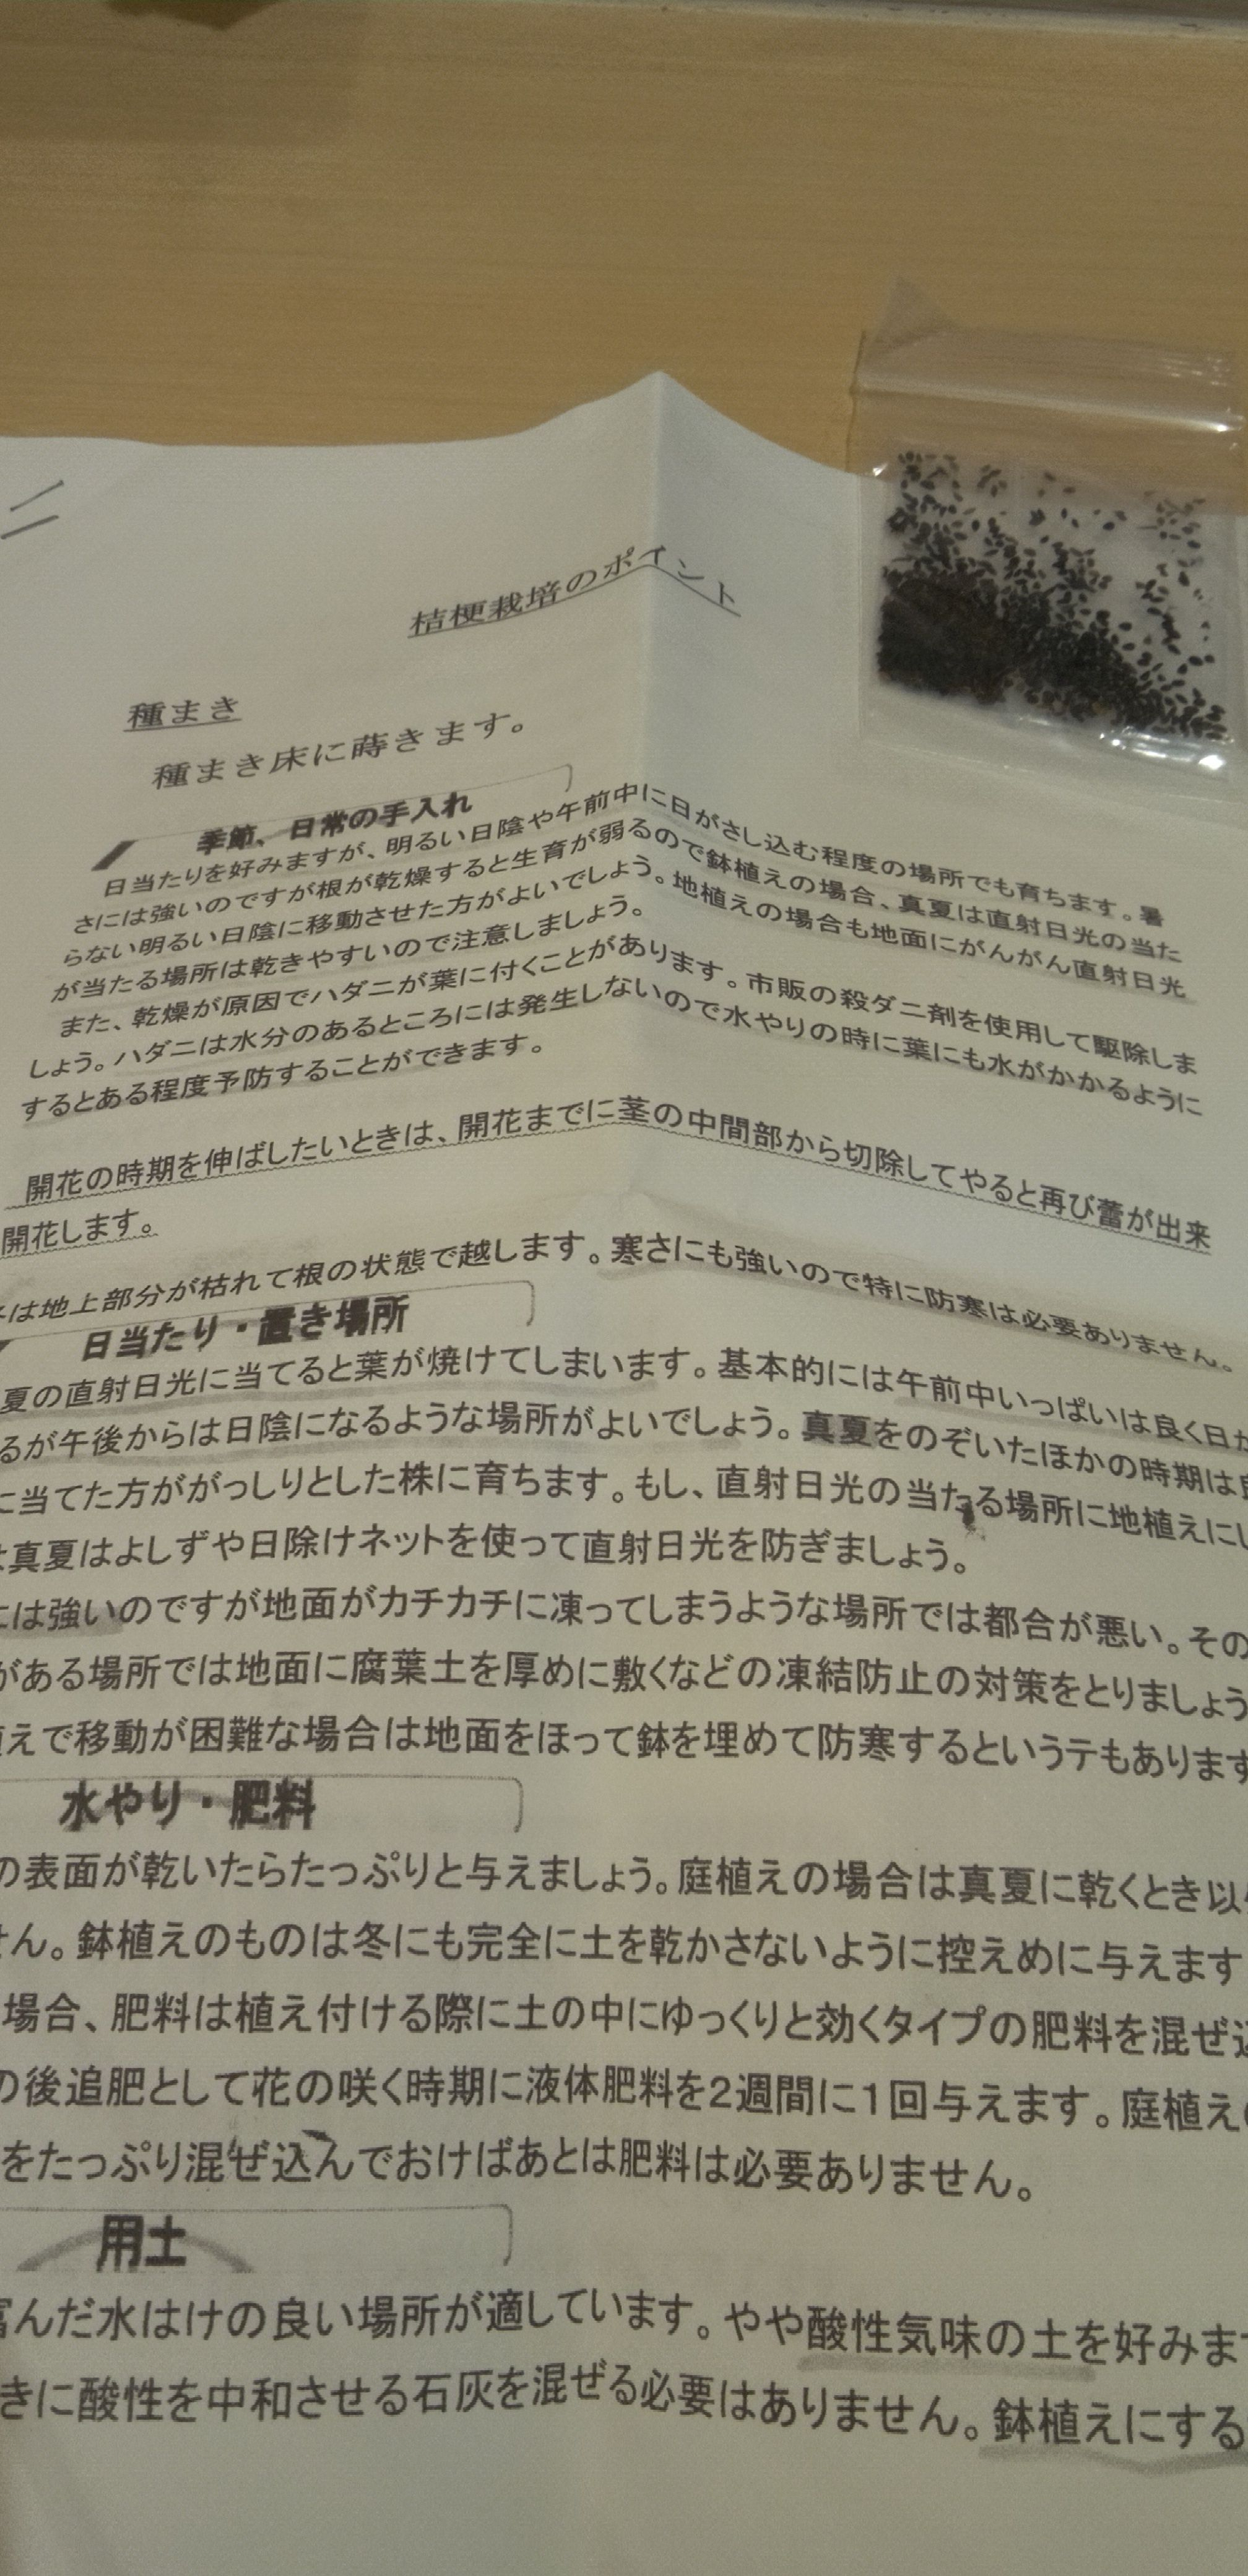 桔梗栽培のポイント
種まき
種まき床に蒔きます。
季節、日常の手入れ
日当たりを好みますが、明るい日陰や午前中に日がさし込む程度の場所でも育ちます。暑
さには強いのですが根が乾燥すると生育が弱るので鉢植えの場合、真夏は直射日光の当た
らない明るい日陰に移動させた方がよいでしょう。地植えの場合も地面にがんがん直射日光
が当たる場所は乾きやすいので注意しましょう。
また、乾燥が原因でハダニが葉に付くことがあります。市販の殺ダニ剤を使用して駆除しま
しょう。ハダニは水分のあるところには発生しないので水やりの時に葉にも水がかかるように
するとある程度予防することができます。
開花の時期を伸ばしたいときは、開花までに茎の中間部から切除してやると再び蕾が出来
開花します。
は地上部分が枯れて根の状態で越します。寒さにも強いので特に防寒は必要ありません。
日当たり・置き場所
夏の直射日光に当てると葉が焼けてしまいます。基本的には午前中いっぱいは良く日が
るが午後からは日陰になるような場所がよいでしょう。真夏をのぞいたほかの時期は良
に当てた方ががっしりとした株に育ちます。もし、直射日光の当たる場所に地植えにし
真夏はよしずや日除けネットを使って直射日光を防ぎましょう。
には強いのですが地面がカチカチに凍ってしまうような場所では都合が悪い。その
がある場所では地面に腐葉土を厚めに敷くなどの凍結防止の対策をとりましょう
植えで移動が困難な場合は地面をほって鉢を埋めて防寒するというテもあります
水やり・肥料
の表面が乾いたらたっぷりと与えましょう。庭植えの場合は真夏に乾くとき以
せん。鉢植えのものは冬にも完全に土を乾かさないように控えめに与えます
場合、肥料は植え付ける際に土の中にゆっくりと効くタイプの肥料を混ぜ込
の後追肥として花の咲く時期に液体肥料を2週間に1回与えます。庭植えの
をたっぷり混ぜ込んでおけばあとは肥料は必要ありません。
用土
富んだ水はけの良い場所が適しています。やや酸性気味の土を好みます
きに酸性を中和させる石灰を混ぜる必要はありません。鉢植えにする